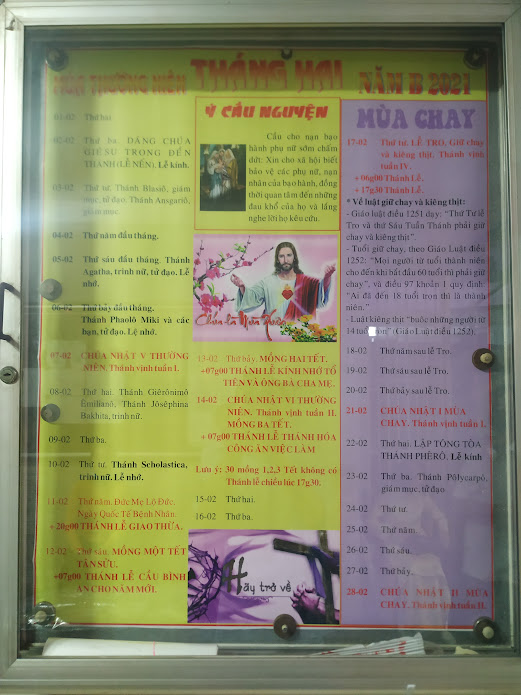 MÙA THƯỜNG NIÊN
THÁNG HAI
NĂM B 2021
01-02 Thứ hai.
02-02 Thứ ba. DÂNG CHÚA
GIÊSU TRONG ĐỀN
THÁNH (LỄ NẾN). Lễ kính.
03-02 Thứ tư. Thánh Blasiô, giám
mục, tử đạo. Thánh Ansgariô,
giám mục.
04-02 Thứ năm đầu tháng.
05-02 Thứ sáu đầu tháng. Thánh
Agatha, trinh nữ, tử đạo. Lễ
nhớ.
06-02 Thứ bảy đầu tháng.
Thánh Phaolô Miki và các
bạn, tử đạo. Lễ nhớ.
07-02 CHÚA NHẬT V THƯỜNG
NIÊN. Thánh vịnh tuần I.
08-02 Thứ hai. Thánh Giêrônimô
Êmilianô, Thánh Jôsêphina
Bakhita, trinh nữ.
09-02 Thứ ba.
10-02 Thứ tư. Thánh Scholastica,
trinh nữ. Lễ nhớ.
11-02 Thứ năm. Đức Mẹ Lộ Đức.
Ngày Quốc Tế Bệnh Nhân.
+ 20g00 THÁNH LỄ GIAO THỪA.
12-02 Thứ sáu. MÔNG MỘT TẾT
TÂN SỬU.
+07g00 THÁNH LỄ CẦU BÌNH
AN CHO NĂM MỚI.
Ý CẦU NGUYỆN
Cầu cho nạn bạo
hành phụ nữ sớm chấm
dứt: Xin cho xã hội biết
bảo vệ các phụ nữ, nạn
nhân của bạo hành, đồng
thời quan tâm đến những
đau khổ của họ và lắng
nghe lời họ kêu cứu.
Chúa là Mùa Xuân
13-02 Thứ bảy. MÔNG HAI TẾT.
+07g00 THÁNH LỄ KÍNH NHỚ TỔ
TIÊN VÀ ÔNG BÀ CHA MẸ.
14-02 CHÚA NHẬT VI THƯỜNG
NIÊN. Thánh vịnh tuần II.
MÔNG BA TẾT.
+ 07g00 THÁNH LỄ THÁNH HÓA
CÔNG ĂN VIỆC LÀM
Lưu ý: 30 mồng 1,2,3 Tết không có
Thánh lễ chiều lúc 17g30.
15-02 Thứ hai.
16-02 Thứ ba.
Hãy trở về
MÙA CHAY
17-02 Thứ tư. LỄ TRO. Giữ chay
và kiêng thịt. Thánh vịnh
tuần IV.
+ 06g00 Thánh Lễ.
+ 17g30 Thánh Lễ.
* Về luật giữ chay và kiêng thịt:
- Giáo luật điều 1251 dạy: "Thứ Tư lễ
Tro và thứ Sáu Tuần Thánh phải giữ
chay và kiêng thịt".
- Tuổi giữ chay, theo Giáo Luật điều
1252: "Mọi người từ tuổi thành niên
cho đến khi bắt đầu 60 tuổi thì phải giữ
chay", và điều 97 khoản 1 quy định:
"Ai đã đến 18 tuổi trọn thì là thành
niên."
- Luật kiêng thịt "buộc những người từ
14 tuổi trọn" (Giáo Luật điều 1252).
18-02 Thứ năm sau lễ Tro.
19-02 Thứ sáu sau lễ Tro.
20-02 Thứ bảy sau lễ Tro.
21-02 CHÚA NHẬT I MÙA
CHAY. Thánh vịnh tuần I.
22-02 Thứ hai. LẬP TÔNG TÒA
THÁNH PHÊRÔ. Lễ kính
23-02 Thứ ba. Thánh Pôlycarpô,
giám mục, tử đạo
24-02 Thứ tư.
25-02 Thứ năm.
26-02 Thứ sáu.
27-02 Thứ bảy.
28-02 CHÚA NHẬT II MÙA
CHAY. Thánh vịnh tuần II.